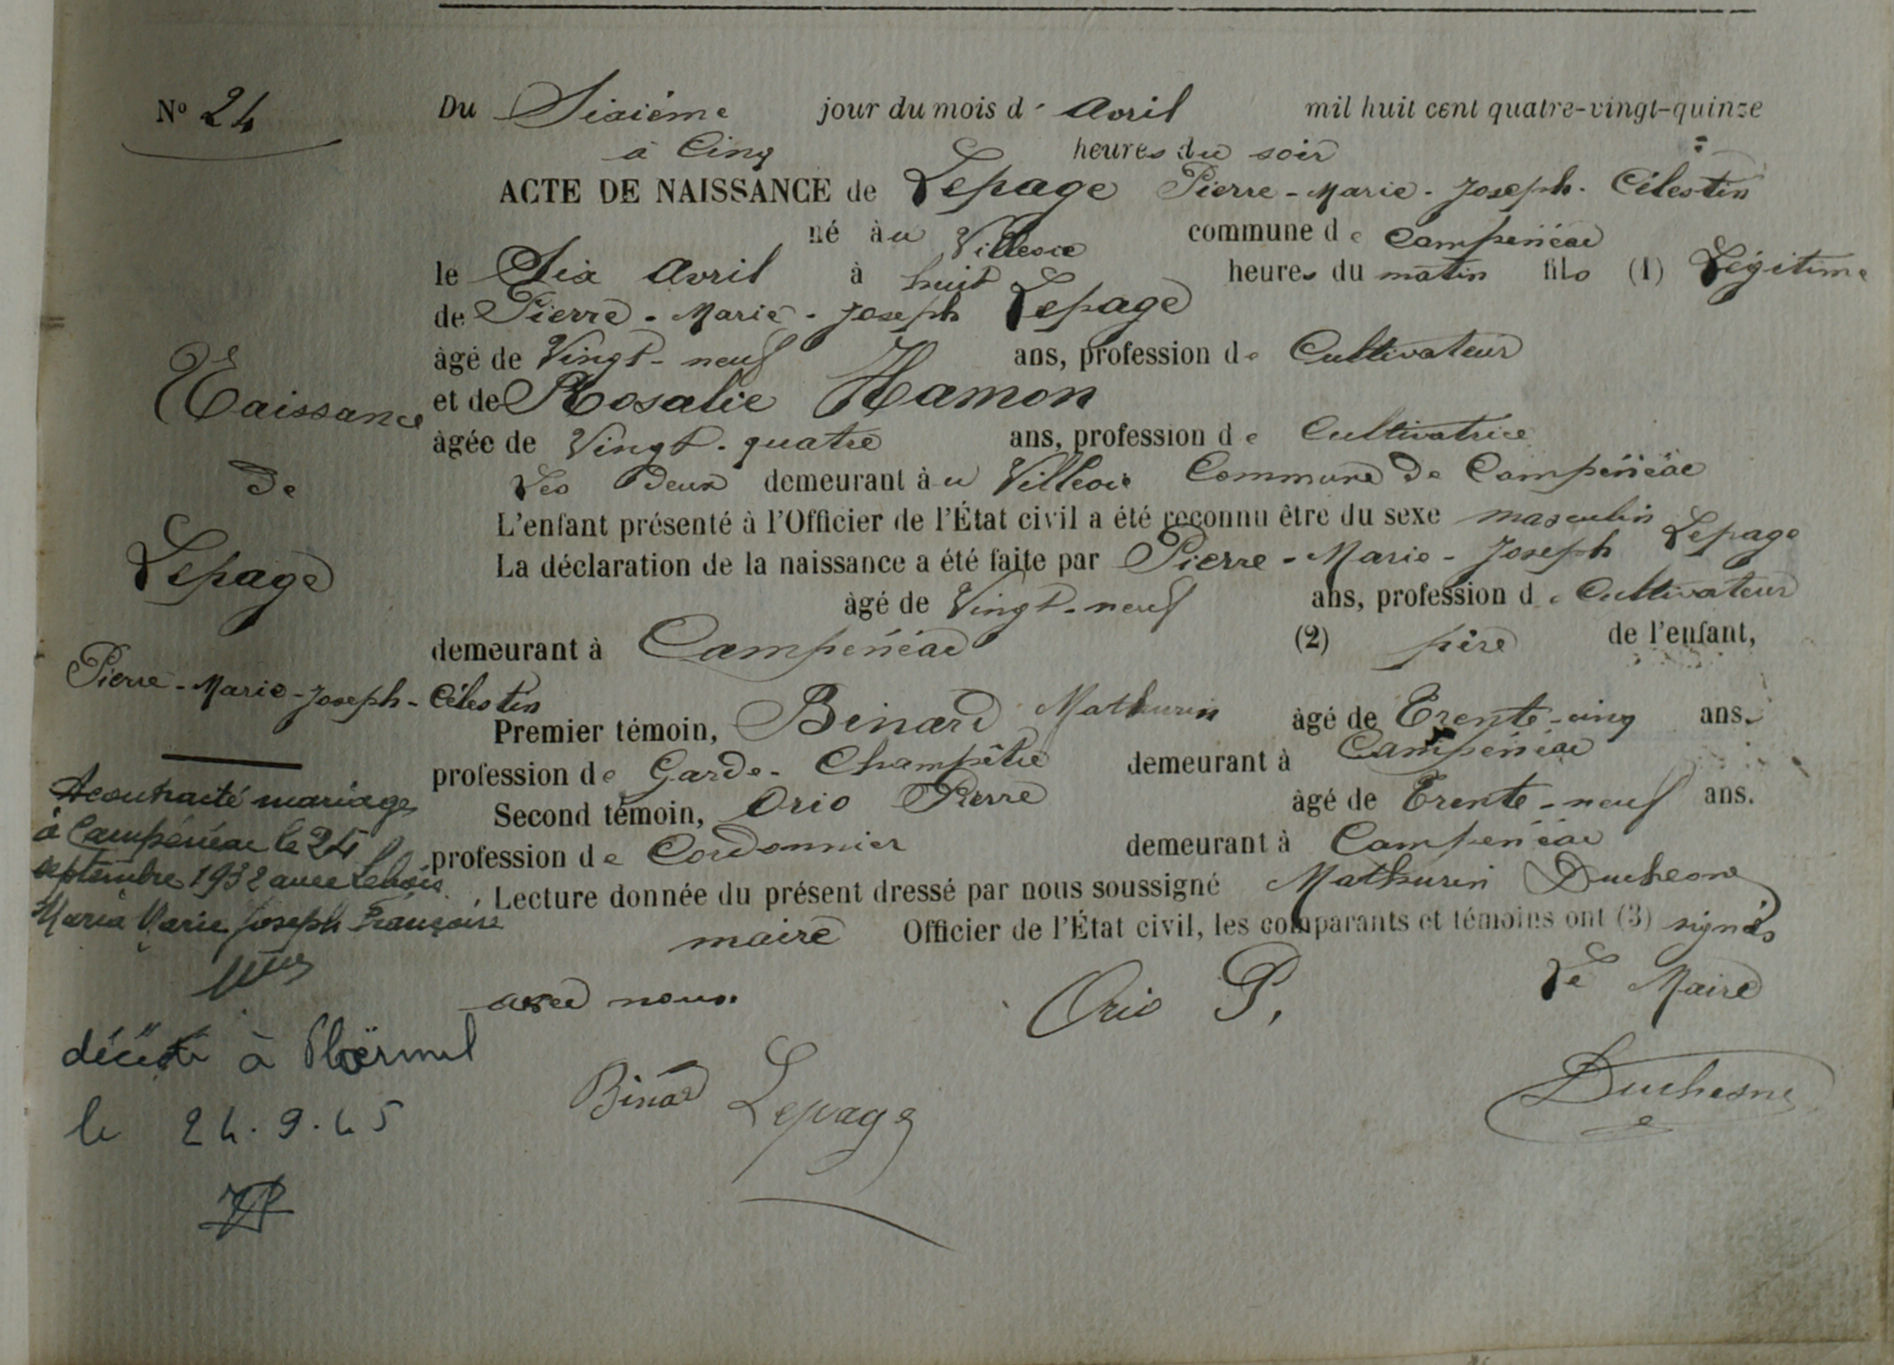 N° 24
Du Sixième jour du mois d' Avril mil huit cent quatre-vingt-quinze
à Cinq heures du soir
ACTE DE NAISSANCE de Lepage Pierre-Marie-Joseph-Célestin
né à u commune de Campénéac
le Six Avril à huit heures du matin fils (1) Légitime
de Pierre-Marie-Joseph Lepage
âgé de Vingt-neuf ans, profession de Cultivateur
et de Rosalie Hamon
âgée de Vingt-quatre ans, profession de Cultivatrice
Les Deux demeurant à u Commune de Campénéac
L'enfant présenté à l'Officier de l'État civil a été reconnu être du sexe masculin
La déclaration de la naissance a été faite par Pierre-Marie-Joseph Lepage
âgé de Vingt-neuf ans, profession de Cultivateur
demeurant à Campénéac (2) père de l'enfant,
Premier témoin, Binard Mathurin âgé de Trente-cinq ans.
profession de Garde-Champêtre demeurant à Campénéac
Second témoin, Orio Pierre âgé de Trente-neuf ans.
profession de Cordonnier demeurant à Campénéac
Lecture donnée du présent dressé par nous soussigné Mathurin Duchesne
maire Officier de l'État civil, les comparants et témoins ont (3) signés
avec nous.
Orio P,
Le Maire
Binard Lepage
Duchesne
Naissance
De
Lepage
Pierre-Marie-Joseph-Célestin
A contracté mariage
à Campénéac le 24
septembre 1932 avec
Maria Marie Joseph Françoise
décédé à Ploërmel
le 24.9.45